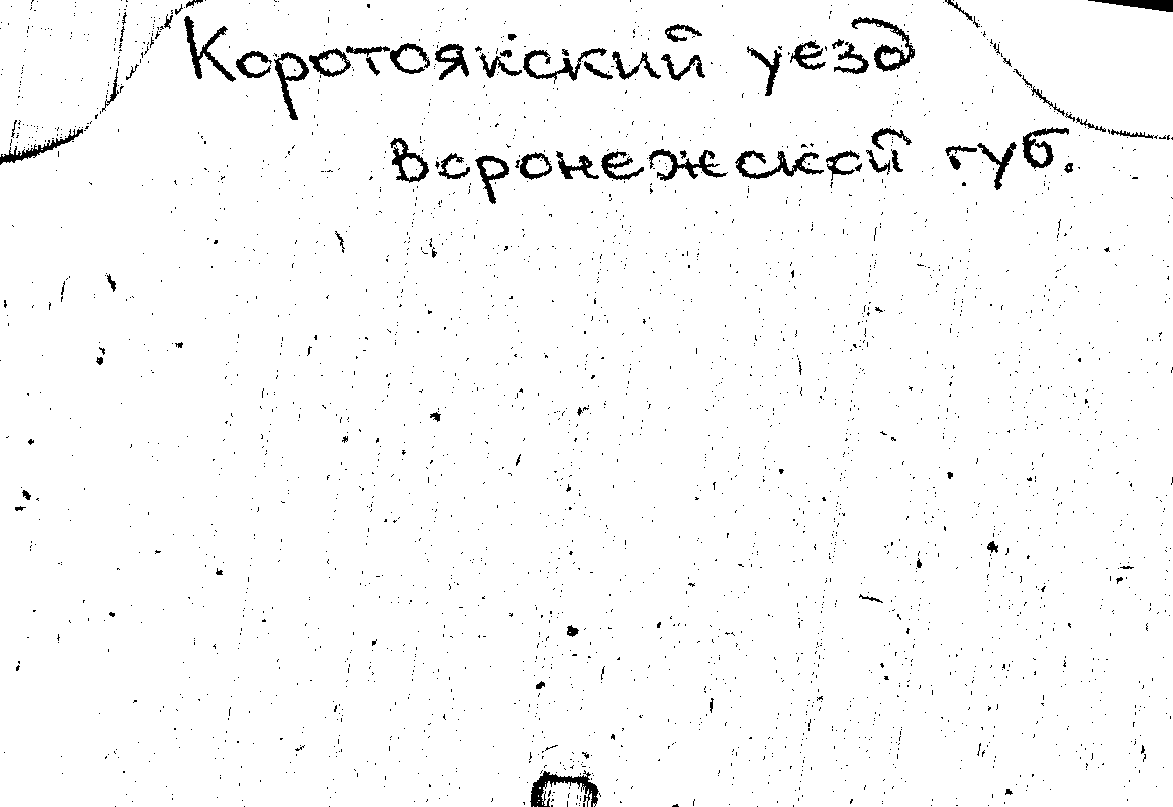 Коротоякский уезд
Воронежской губ.